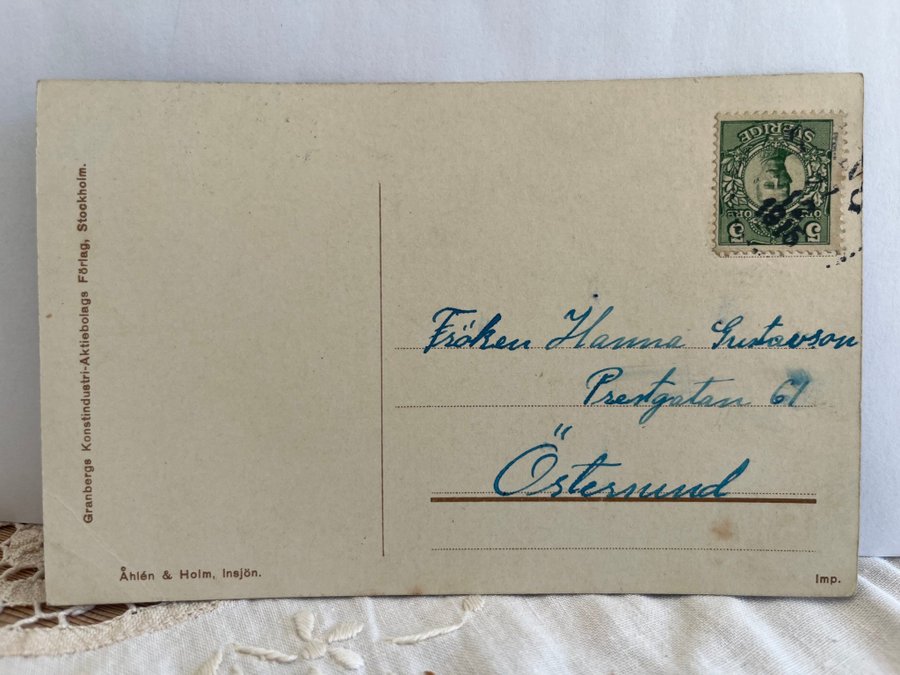 Granbergs Konstindustri-Aktiebolags Förlag, Stockholm.
SVERIGE
5 ÖRE 5
1915
Fröken Hanna Gustavson
Prestgatan 61
Östersund
Åhlén & Holm, Insjön.
Imp.